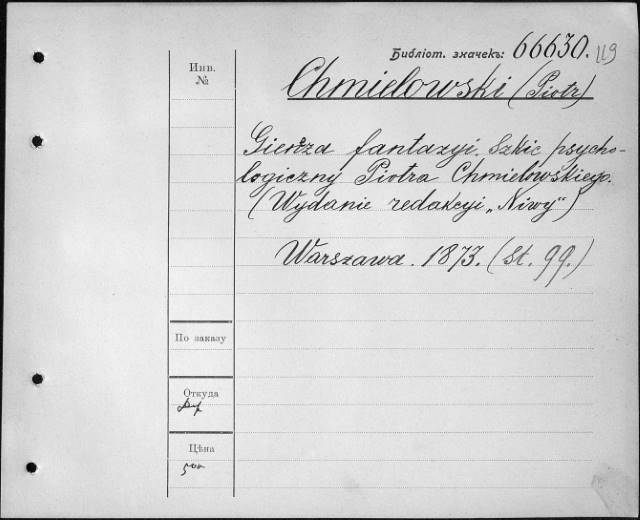 Библіот. значекъ: 66630. 119
Инв.
№
Chmielowski (Piotr)
Gieneza fantazyi. Szkic psycho-
logiczny Piotra Chmielowskiego.
(Wydanie redakcyi „Niwy")
Warszawa. 1873. (st. 99.)
По заказу
Откуда
Цѣна